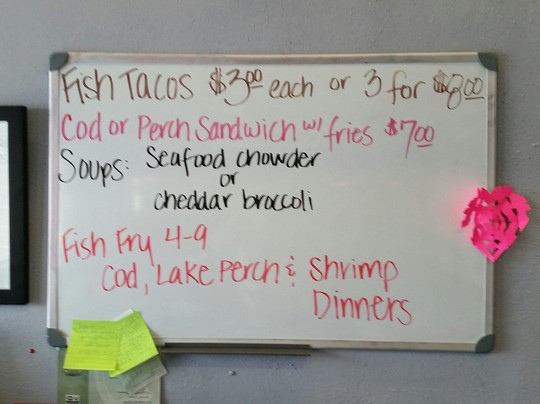 Fish Tacos $3.00 each or 3 for $8.00
Cod or Perch Sandwich w/ fries $7.00
Soups: Seafood chowder
or
cheddar broccoli
Fish Fry 4-9
Cod, Lake Perch & Shrimp
Dinners